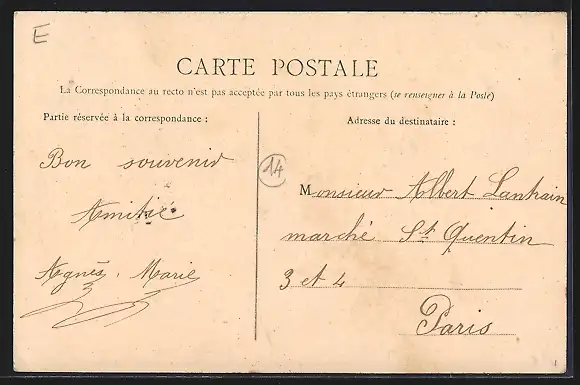 E
CARTE POSTALE
La Correspondance au recto n'est pas acceptée par tous les pays étrangers (se renseigner à la Poste)
Partie réservée à la correspondance :
Bon souvenir
Amitié
Agnès. Marie
Adresse du destinataire :
14
Monsieur Albert Lanhain
marché St Quentin
3 et 4
Paris